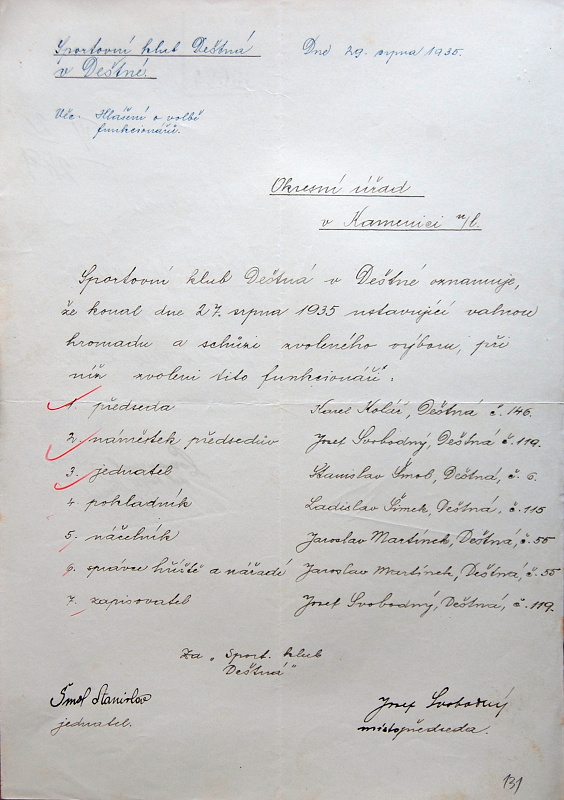 Sportovní klub Deštná
v Deštné.
Dne 29. srpna 1935.
Věc. Hlášení o volbě
funkcionářů.
Okresní úřad
v Kamenici n/L.
Sportovní klub Deštná v Deštné oznamuje,
že konal dne 27. srpna 1935 ustavující valnou
hromadu a schůzi zvoleného výboru, při
níž zvoleni tito funkcionáři:
1. předseda Karel Kolíč, Deštná č. 146.
2. náměstek předsedův Josef Svobodný, Deštná č. 119.
3. jednatel Stanislav Šmol, Deštná, č. 6.
4. pokladník Ladislav Šimek, Deštná, č. 115
5. náčelník Jaroslav Martínek, Deštná, č. 55
6. správce hřiště a nářadí Jaroslav Martínek, Deštná, č. 55
7. zapisovatel Josef Svobodný, Deštná, č. 119.
Za „Sport. klub
Deštná"
Šmol Stanislav
jednatel.
Josef Svobodný
místopředseda.
131